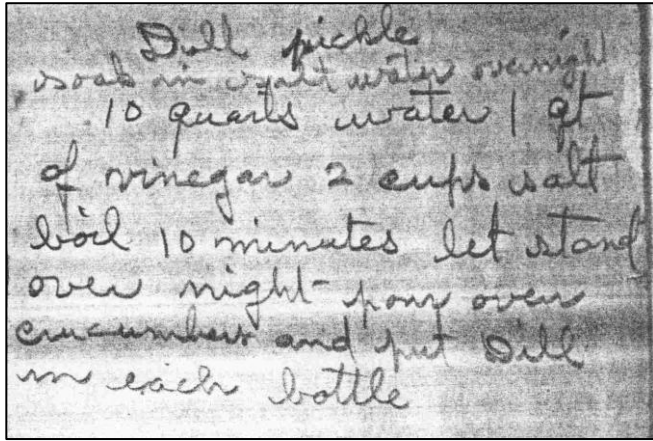 Dill pickle
soak in salt water overnight
10 quarts water 1 qt
of vinegar 2 cups salt
boil 10 minutes let stand
over night - pour over
crucumbers and put Dill
in each bottle